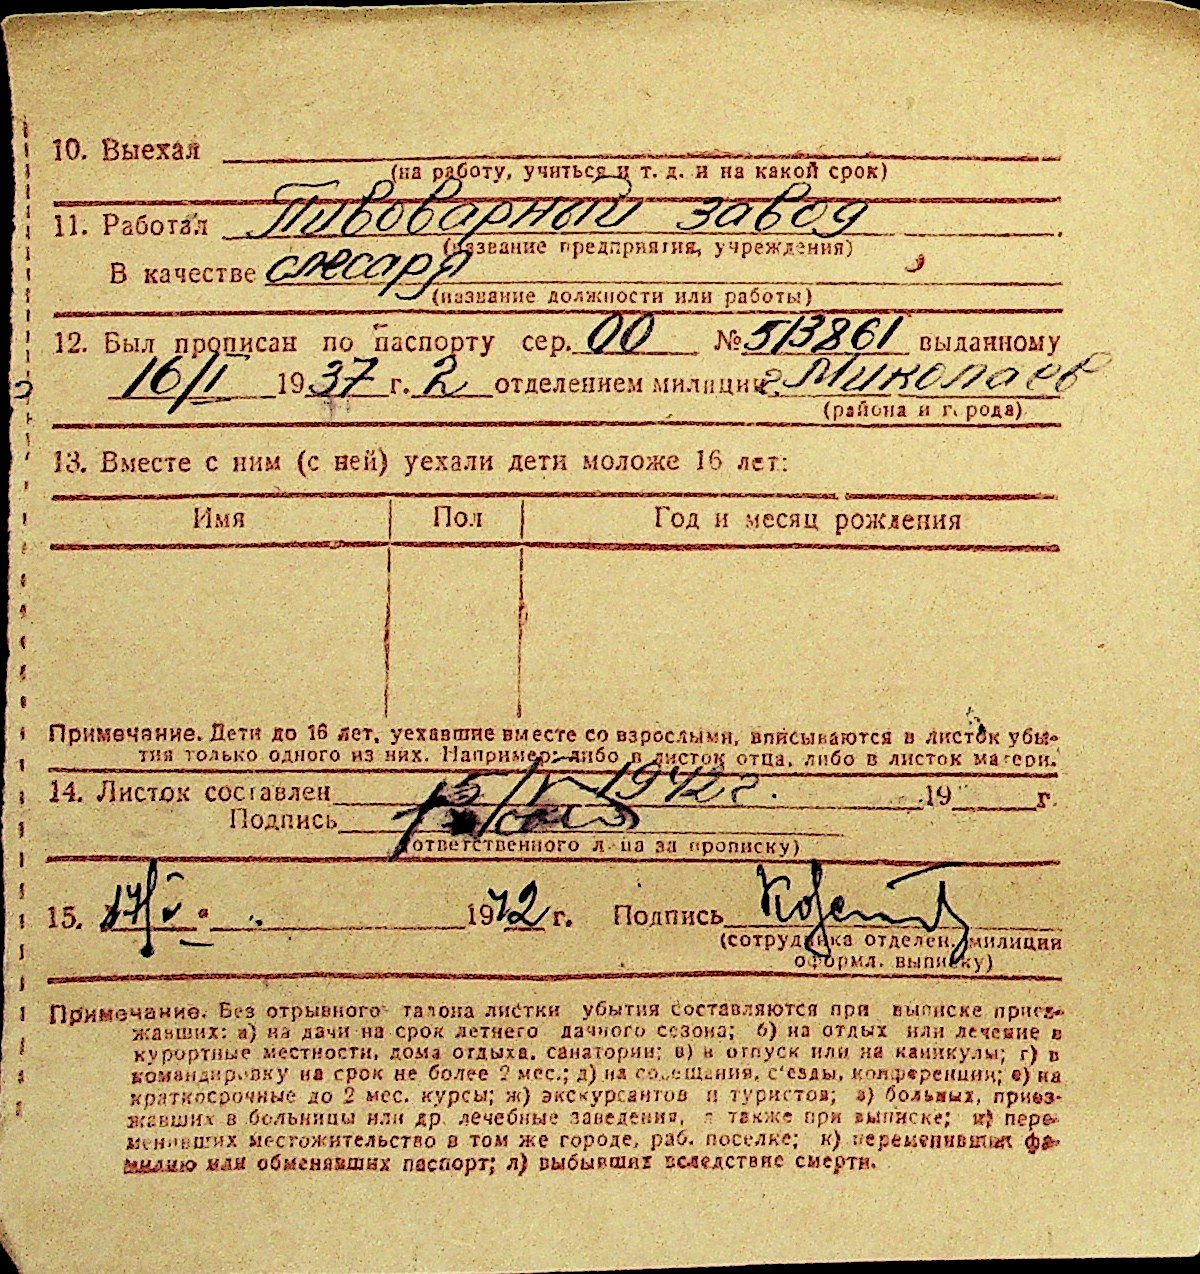 10. Выехал
(на работу, учиться и т. д. и на какой срок)
11. Работал Пивоварный завод
(название предприятия, учреждения)
В качестве слесаря
(название должности или работы)
12. Был прописан по паспорту сер. 00 № 513861 выданному
16/I 1937 г. 2 отделением милиции г. Миколаев
(района и города)
13. Вместе с ним (с ней) уехали дети моложе 16 лет:
Имя Пол Год и месяц рождения
Примечание. Дети до 16 лет, уехавшие вместе со взрослыми, вписываются в листок убы-
тия только одного из них. Например: либо в листок отца, либо в листок матери.
14. Листок составлен 15/V 1942 г. 19 г.
Подпись
(ответственного лица за прописку)
15. 17/V 1942 г. Подпись
(сотрудника отделен. милиции
оформл. выписку)
Примечание. Без отрывного талона листки убытия составляются при выписке приез-
жавших: а) на дачи на срок летнего дачного сезона; б) на отдых или лечение в
курортные местности, дома отдыха, санатории; в) в отпуск или на каникулы; г) в
командировку на срок не более 2 мес.; д) на совещания, с'езды, конференции; е) на
краткосрочные до 2 мес. курсы; ж) экскурсантов и туристов; з) больных, приез-
жавших в больницы или др. лечебные заведения, а также при выписке; и) пере-
менивших местожительство в том же городе, раб. поселке; к) переменивших фа-
милию или обменявших паспорт; л) выбывших вследствие смерти.